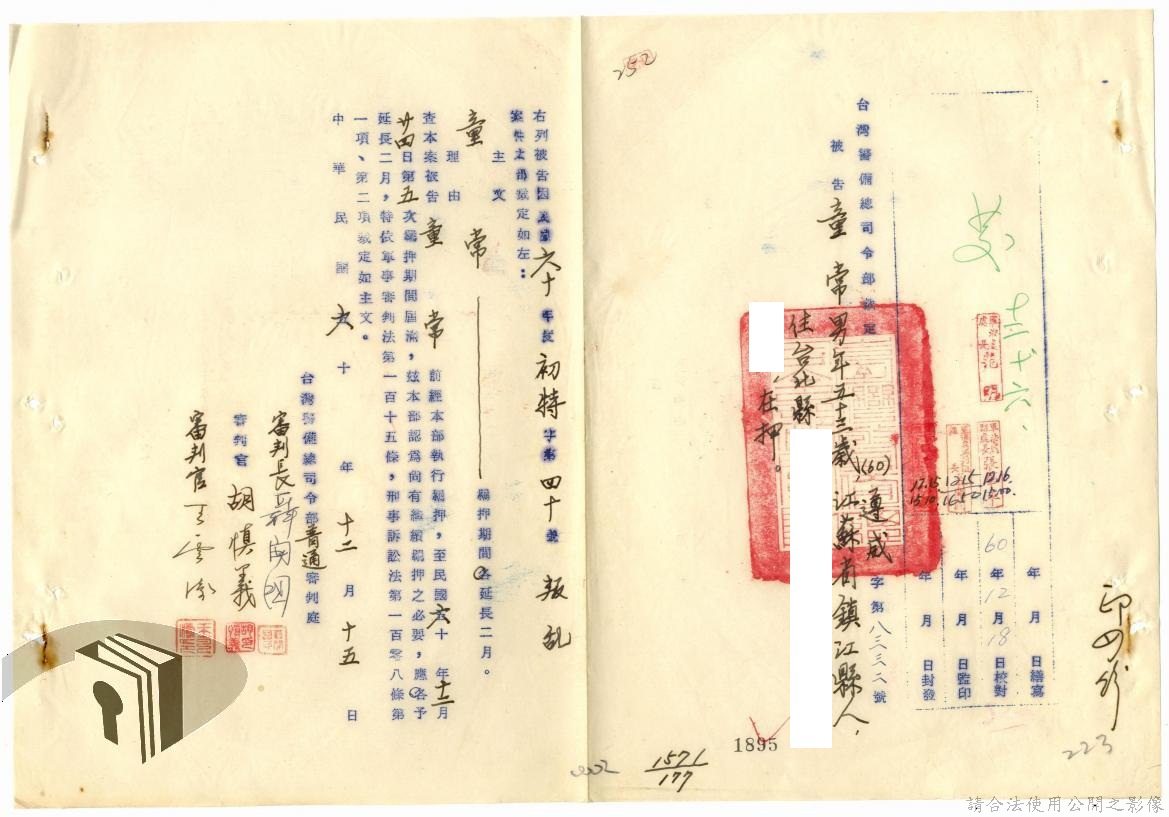 台灣警備總司令部裁定
(60)遵威字第八三三二號
被告 童常 男年五十三歲,江蘇省鎮江縣人,
住台北縣
,在押。
右列被告因民國六十年度初特字第四十號叛乱
案件本部裁定如左:
主文
童常 羈押期間各延長二月。
理由
查本案被告 童常 前經本部執行羈押,至民國六十年十二月
廿四日第五次羈押期間屆滿,茲本部認為尚有繼續羈押之必要,應各予
延長二月,特依軍事審判法第一百十五條,刑事訴訟法第一百零八條第
一項、第二項裁定如主文。
中華民國六十年十二月十五日
台灣警備總司令部普通審判庭
審判長
審判官 胡慎義
審判官
年月日繕寫
60年12月18日校對
年月日監印
年月日封發
十二、十六、
12.16.
15.00.
12.15
16.50
17.15
15.10.
印四份
252
223
1895
1571
177
請合法使用公開之影像